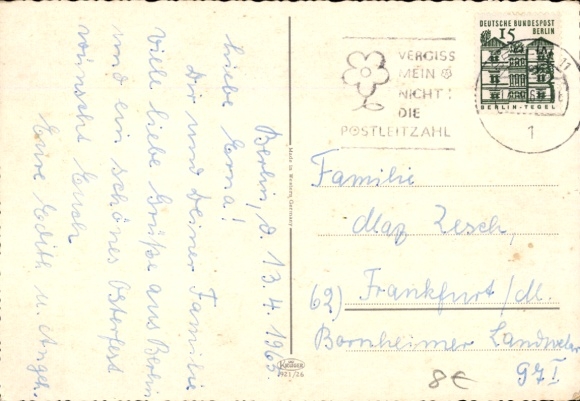 Berlin, d. 13.4.1965
Liebe Erna!
Dir und Deiner Familie
viele liebe Grüße aus Berlin
und ein schönes Osterfest
wünscht Euch
Eure Edith u.
Made in Western Germany
Krüger
DEUTSCHE BUNDESPOST
15 BERLIN
BERLIN-TEGEL
VERGISS
MEIN
NICHT:
DIE
POSTLEITZAHL
1
Familie
Max Zesch,
62) Frankfurt/M.
Bornheimer Landwehr
97 I
8€